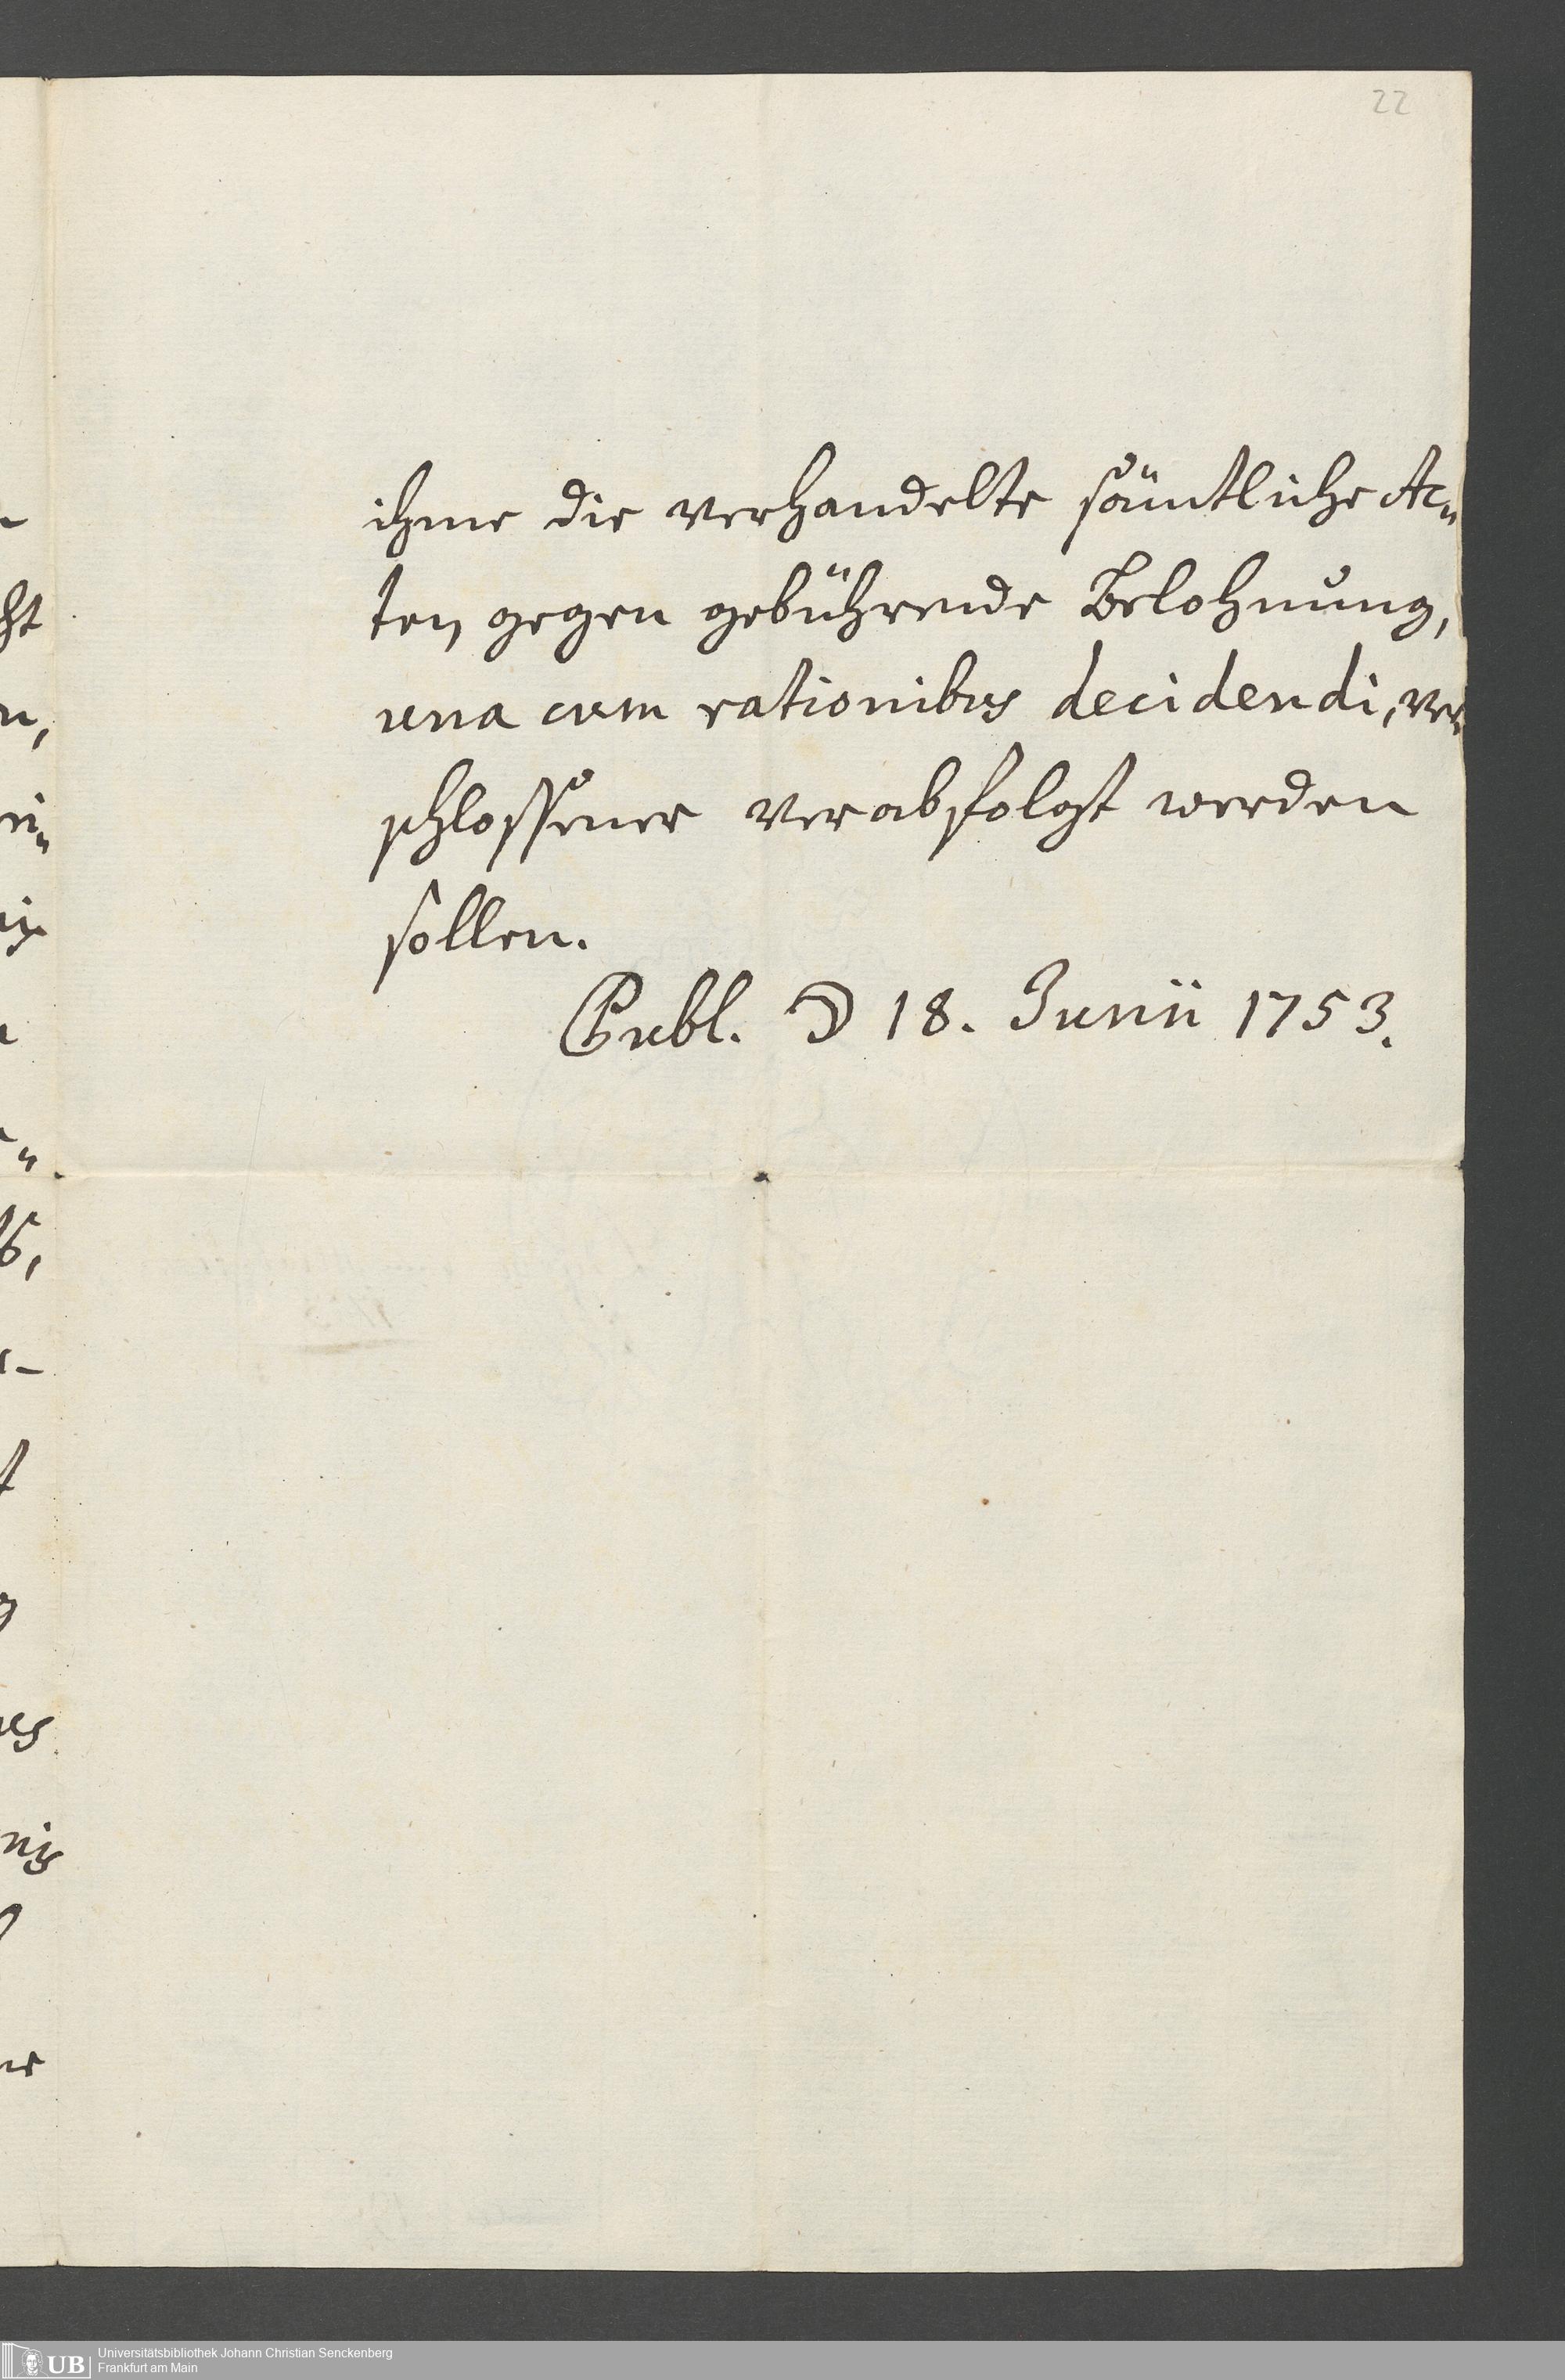 22
ihme die verhandelte sämtliche Ac„
ten gegen gebührende Belohnung,
una cum rationibus decidendi, ver„
schlossener verabfolgt werden
sollen.
Publ. ☽ 18. Junii 1753.
UB Universitätsbibliothek Johann Christian Senckenberg
Frankfurt am Main